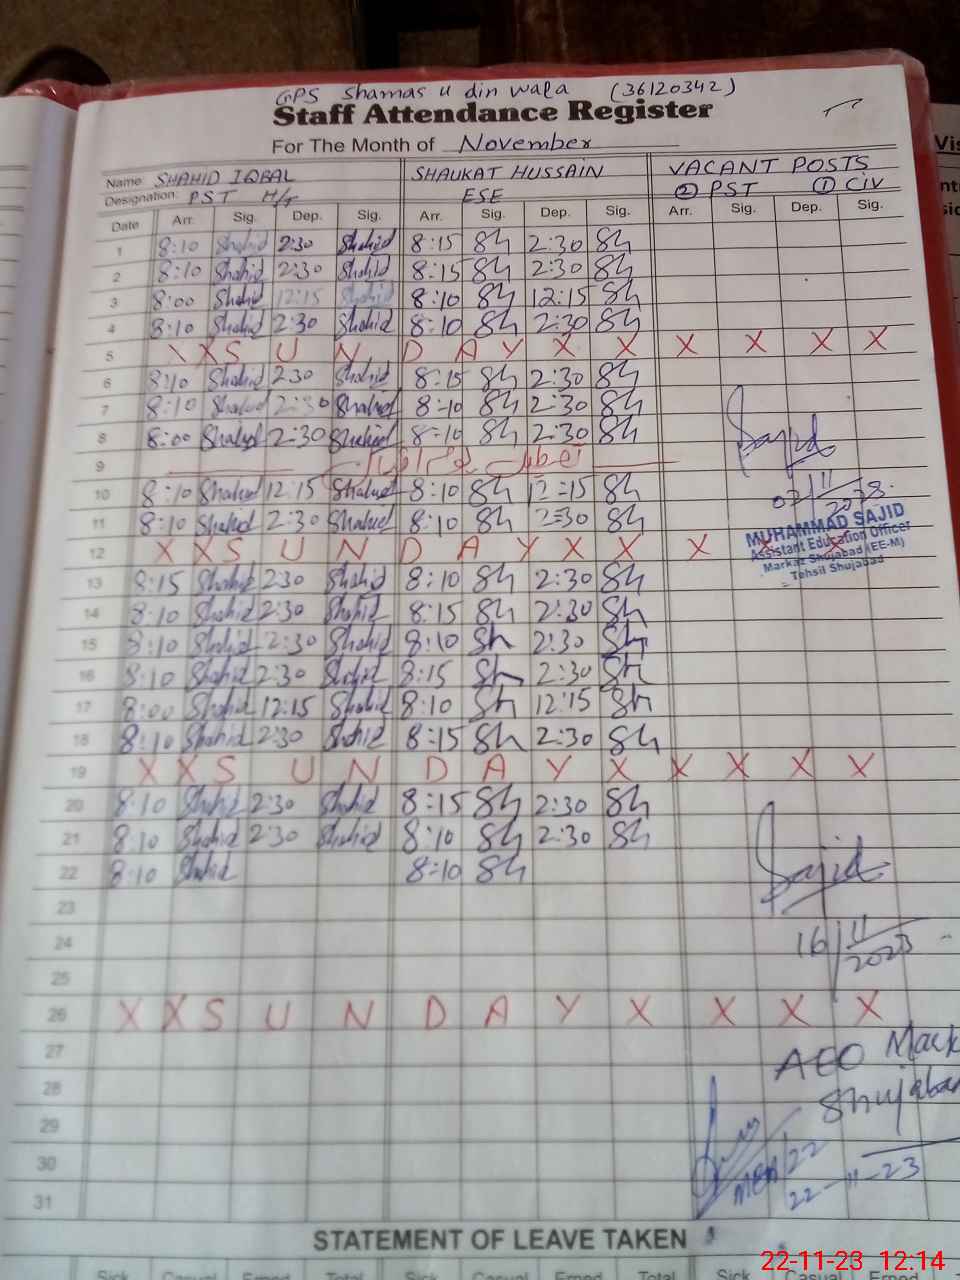 GPS Shamas u din wala (36120342)
Staff Attendance Register
For The Month of November
Name SHAHID IQBAL SHAUKAT HUSSAIN VACANT POSTS
Designation: PST H/T ESE ② PST ① Civ
Date Arr. Sig. Dep. Sig. Arr. Sig. Dep. Sig. Arr. Sig. Dep. Sig.
1 8:10 Shahid 2:30 Shahid 8:15 Sh 2:30 Sh
2 8:10 Shahid 2:30 Shahid 8:15 Sh 2:30 Sh
3 8:00 Shahid 12:15 Shahid 8:10 Sh 12:15 Sh
4 8:10 Shahid 2:30 Shahid 8:10 Sh 2:30 Sh
5 X X S U N D A Y X X X X X X
6 8:10 Shahid 2:30 Shahid 8:15 Sh 2:30 Sh
7 8:10 Shahid 2:30 Shahid 8:10 Sh 2:30 Sh
8 8:00 Shahid 2:30 Shahid 8:10 Sh 2:30 Sh
Sajid
9 تعطیل
10 8:10 Shahid 12:15 Shahid 8:10 Sh 12:15 Sh
07/11/2023
11 8:10 Shahid 2:30 Shahid 8:10 Sh 2:30 Sh
MUHAMMAD SAJID
Assistant Education Officer
Markaz Shujabad (EE-M)
Tehsil Shujabad
12 X X S U N D A Y X X X
13 8:15 Shahid 2:30 Shahid 8:10 Sh 2:30 Sh
14 8:10 Shahid 2:30 Shahid 8:15 Sh 2:30 Sh
15 8:10 Shahid 2:30 Shahid 8:10 Sh 2:30 Sh
16 8:10 Shahid 2:30 Shahid 8:15 Sh 2:30 Sh
17 8:00 Shahid 12:15 Shahid 8:10 Sh 12:15 Sh
18 8:10 Shahid 2:30 Shahid 8:15 Sh 2:30 Sh
19 X X S U N D A Y X X X X X
20 8:10 Shahid 2:30 Shahid 8:15 Sh 2:30 Sh
21 8:10 Shahid 2:30 Shahid 8:10 Sh 2:30 Sh
22 8:10 Shahid 8:10 Sh
Sajid
23
24
16/11/2023
25
26 X X S U N D A Y X X X X
27
AEO Mark
28
Shujabad
29
30
MEA/22
22-11-23
31
STATEMENT OF LEAVE TAKEN
Sick Casual Total Sick Casual Total Sick Casual
22-11-23 12:14